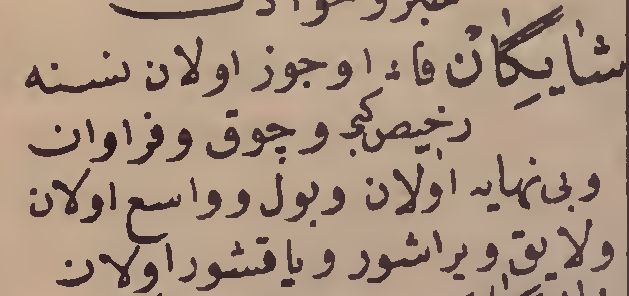 شایگان فا اوجوز اولان نسنه
رخیص کبی و چوق و فراوان
و بی نهایه اولان و بول و واسع اولان
و لایق و یراشور و یاقشور اولان